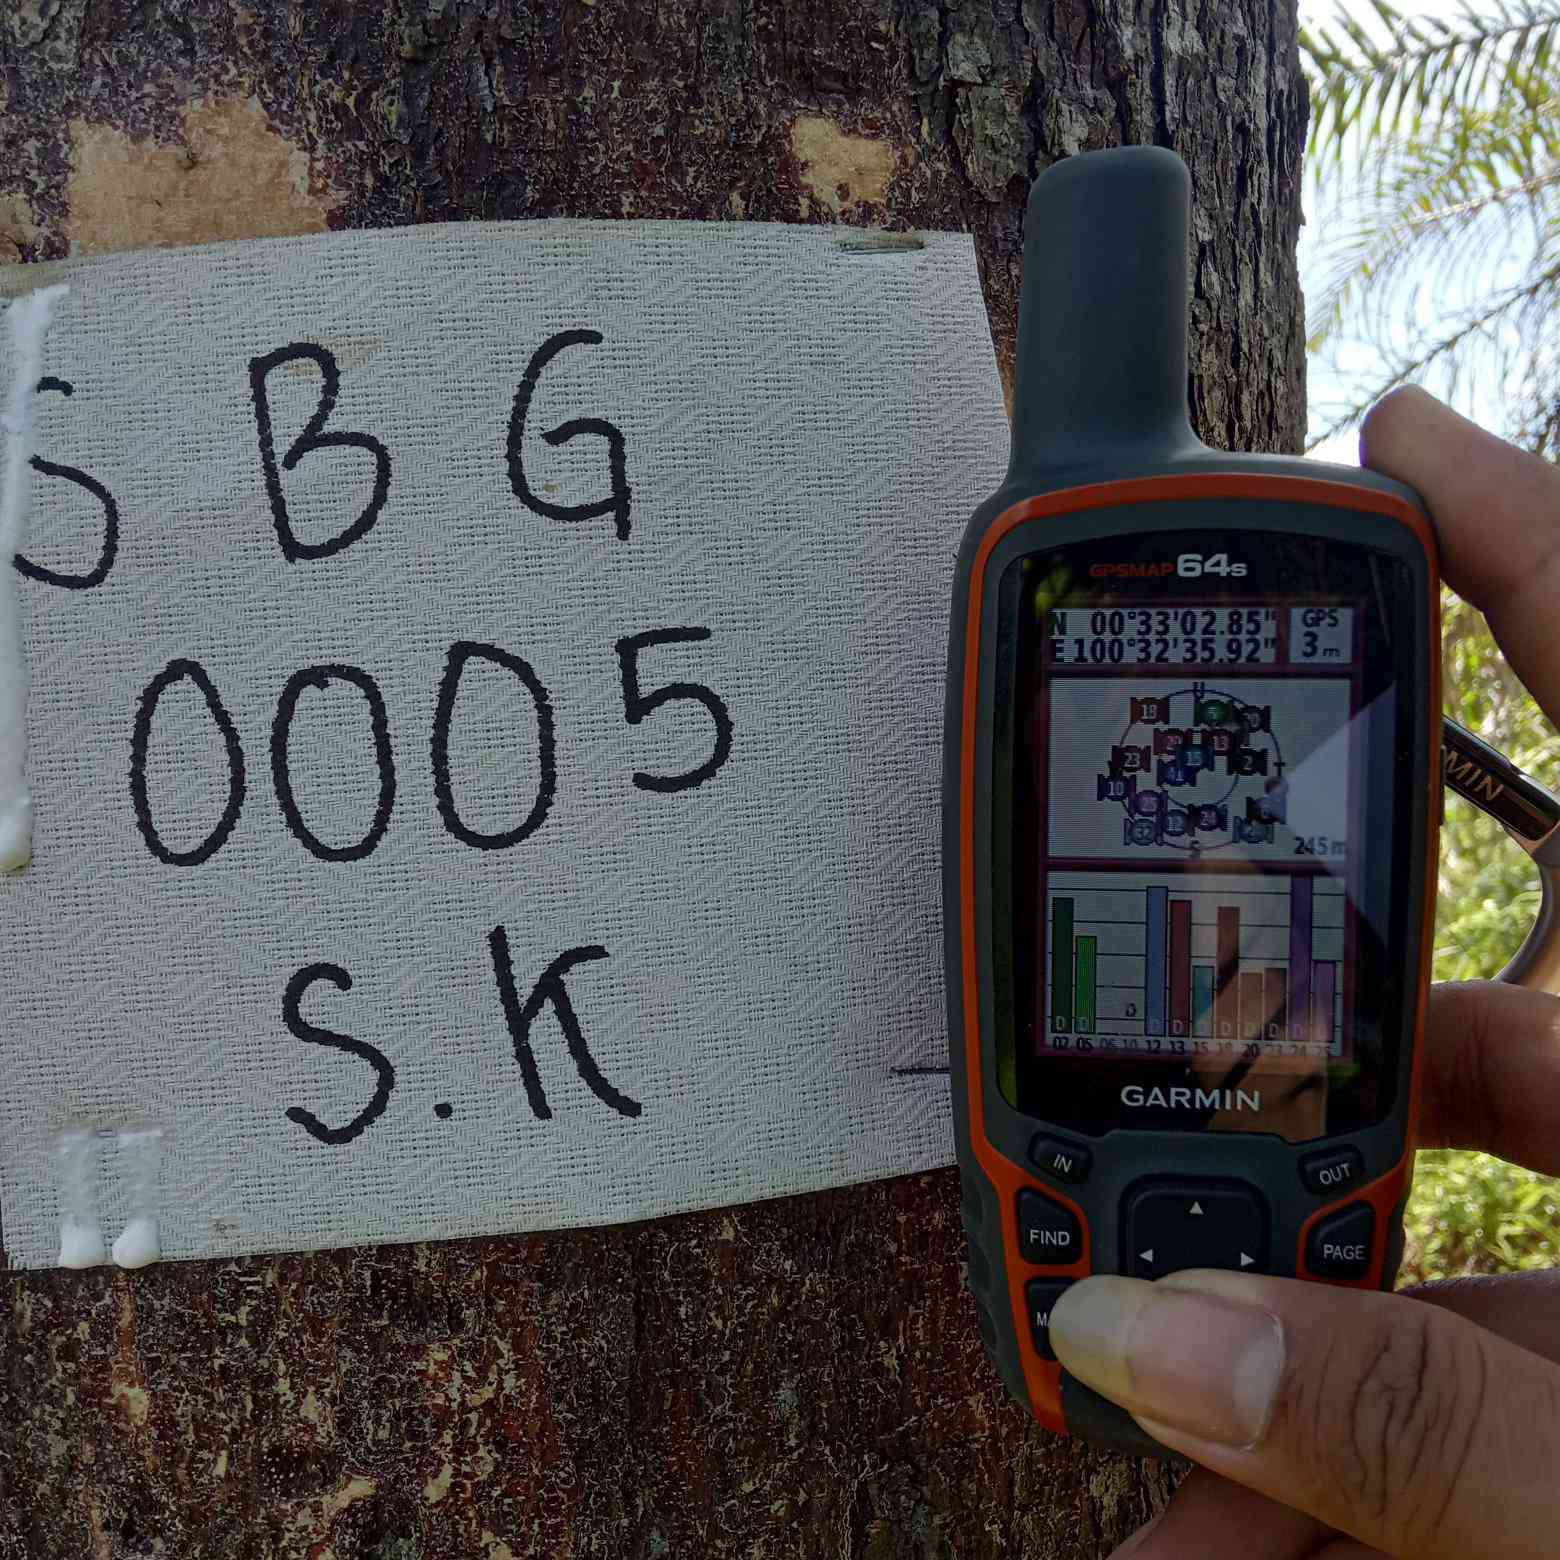 S B G
0005
S.K
GPSMAP 64s
N 00°33'02.85"
E 100°32'35.92"
GPS
3 m
U
19
23
10
2
S
245 m
D
D D D D D D
02 05 06 10 12 13 15 19 20 23 24 25
GARMIN
IN
OUT
FIND
PAGE
MIN